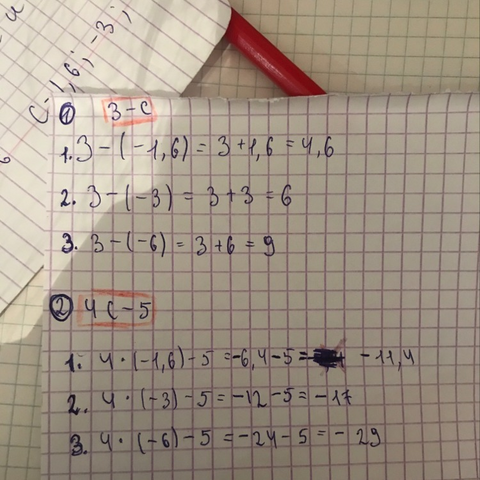 C -1,6; -3;
① 3-c
1. 3-(-1,6) = 3+1,6 = 4,6
2. 3-(-3) = 3+3 = 6
3. 3-(-6) = 3+6 = 9
② 4c-5
1. 4·(-1,6)-5 = -6,4-5 = -11,4
2. 4·(-3)-5 = -12-5 = -17
3. 4·(-6)-5 = -24-5 = -29